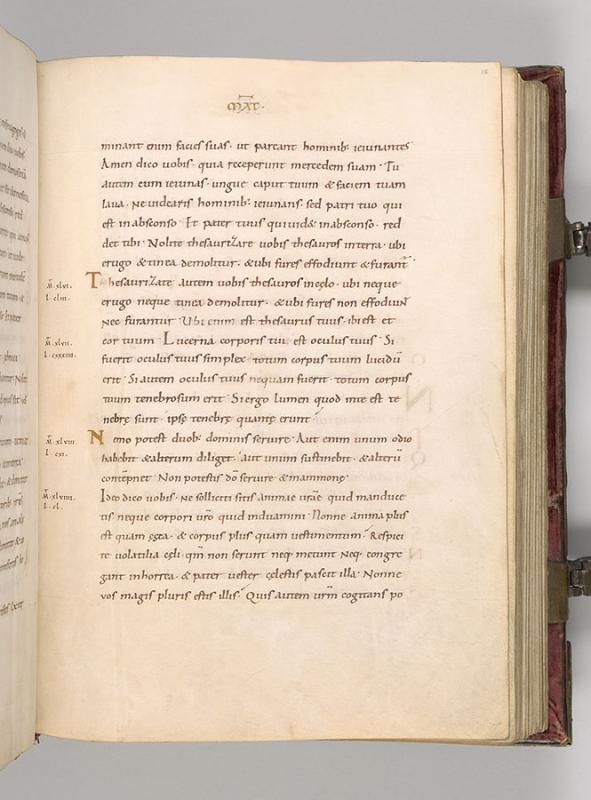 MAT·
minant enim facies suas · ut pareant hominib; ieiunantes
Amen dico uobis · quia receperunt mercedem suam · Tu
autem cum ieiunas · ungue caput tuum & faciem tuam
laua · Ne uidearis hominib; ieiunans · sed patri tuo qui
est in absconso · Et pater tuus qui uid& in absconso · red
det tibi · Nolite thesaurizare uobis thesauros interra · ubi
erugo & tinea demolitur · & ubi fures effodiunt & furant
M̄. xlvi.
L. clııı.
Thesaurizate autem uobis thesauros incęlo · ubi neque
erugo neque tinea demolitur · & ubi fures non effodiunt
Nec furantur · Ubi enim est thesaurus tuus · ibi est et
M̄. xlvıı.
L. cxxxıııı.
cor tuum · Lucerna corporis tui · est oculus tuus · Si
fuerit oculus tuus simplex · totum corpus tuum lucidū
erit · Si autem oculus tuus nequam fuerit · totum corpus
tuum tenebrosum erit · Si ergo lumen quod inte est te
nebrę sunt · ipsę tenebrę quantę erunt
M̄. xlvııı.
L. cxı.
Nemo potest duob; dominis seruire · Aut enim unum odio
habebit & alterum diliget · aut unum sustinebit · & alterū
contēpnet · Non potestis dō seruire & mammonę
M̄. xlvıııı.
L. cl.
Ideo dico uobis · ne solliciti sitis animae urāe quid manduce
tis neque corpori urō quid induamini · Nonne anima plus
est quam ęsca · & corpus plus quam uestimentum · Respici
te uolatilia cęli · qm̄ non serunt neq; metunt neq; congre
gant in horrea · & pater uester cęlestis pascit illa · Nonne
uos magis pluris estis illis · Quis autem urm̄ cogitans po